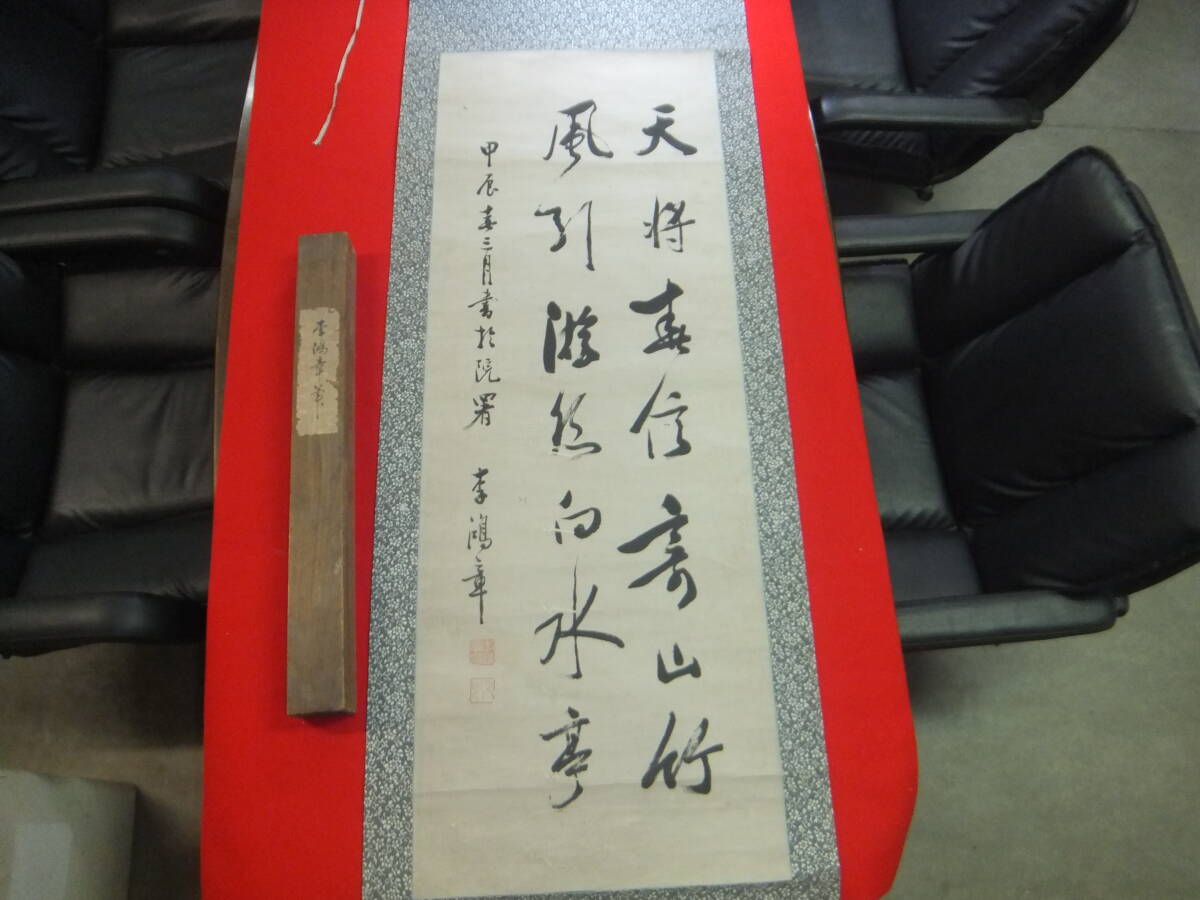 天将春信寄山竹
風引游絲向水亭
甲辰春三月書於院署 李鴻章
李鴻章筆